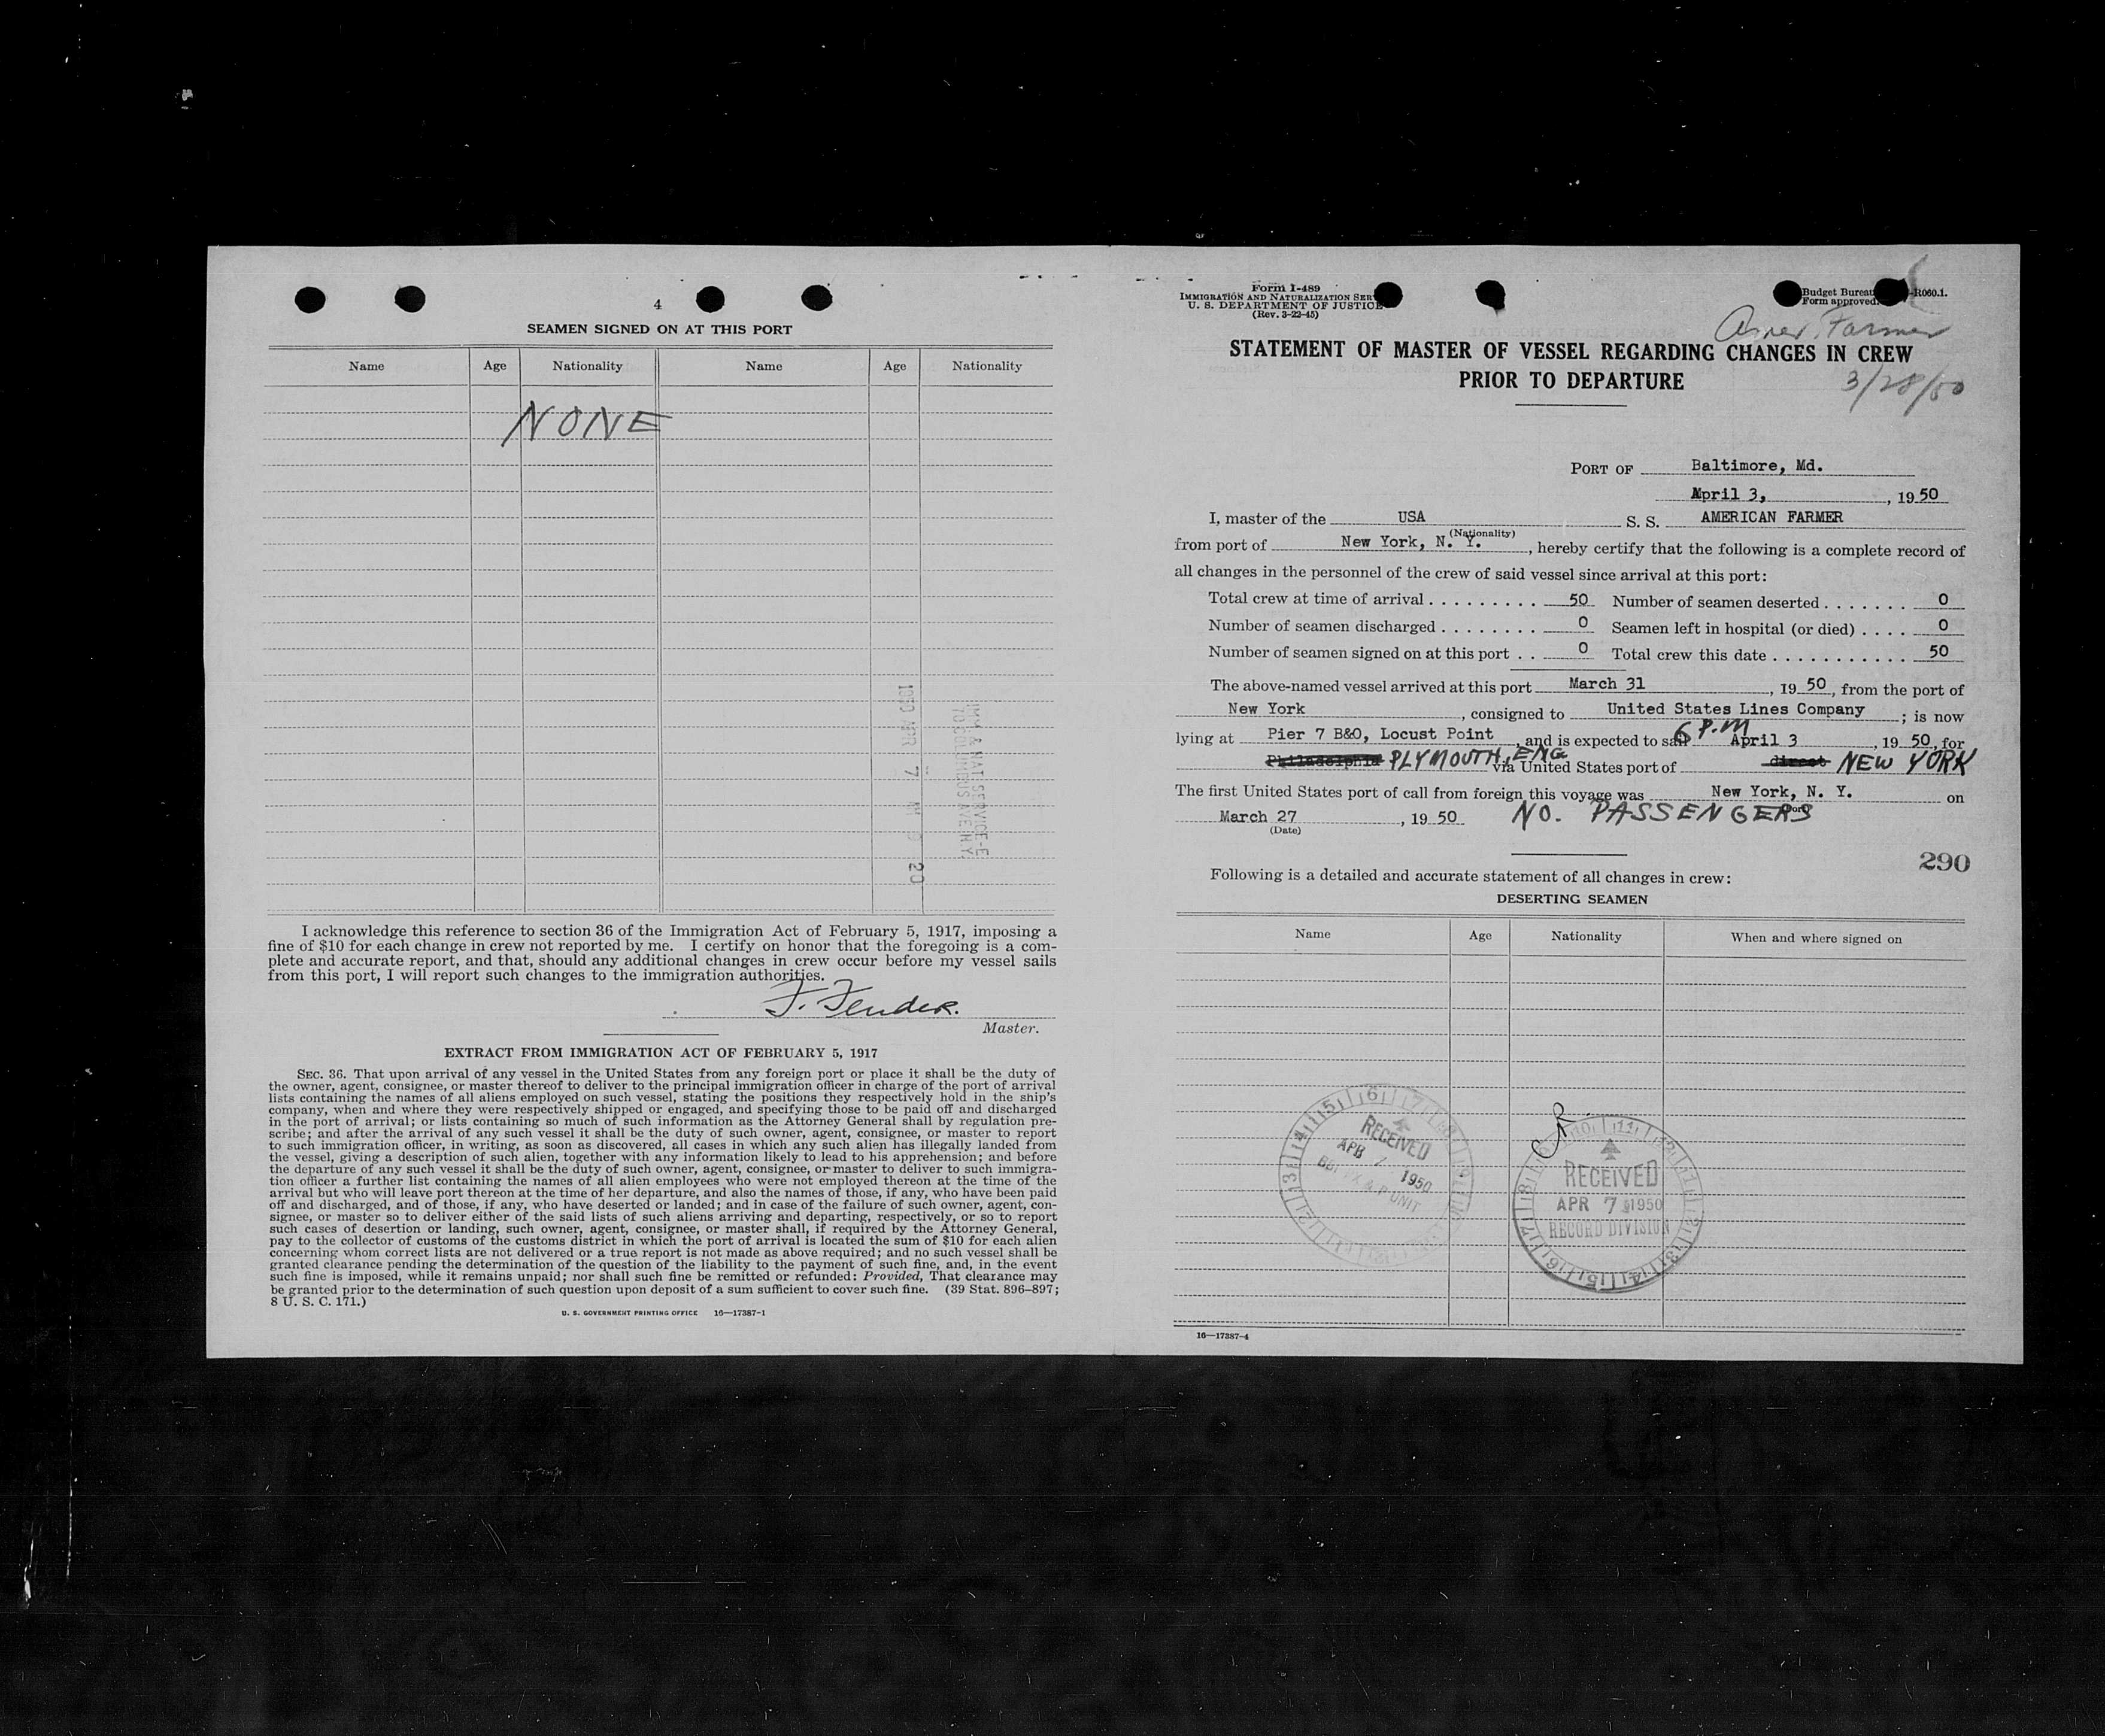 4
SEAMEN SIGNED ON AT THIS PORT
Name Age Nationality Name Age Nationality
NONE
1950 APR 7 20
IMM & NAT SERVICE-E
70 COLUMBUS AVE N.Y.
I acknowledge this reference to section 36 of the Immigration Act of February 5, 1917, imposing a
fine of $10 for each change in crew not reported by me. I certify on honor that the foregoing is a com-
plete and accurate report, and that, should any additional changes in crew occur before my vessel sails
from this port, I will report such changes to the immigration authorities.
F. Fender.
Master.
EXTRACT FROM IMMIGRATION ACT OF FEBRUARY 5, 1917
SEC. 36. That upon arrival of any vessel in the United States from any foreign port or place it shall be the duty of
the owner, agent, consignee, or master thereof to deliver to the principal immigration officer in charge of the port of arrival
lists containing the names of all aliens employed on such vessel, stating the positions they respectively hold in the ship's
company, when and where they were respectively shipped or engaged, and specifying those to be paid off and discharged
in the port of arrival; or lists containing so much of such information as the Attorney General shall by regulation pre-
scribe; and after the arrival of any such vessel it shall be the duty of such owner, agent, consignee, or master to report
to such immigration officer, in writing, as soon as discovered, all cases in which any such alien has illegally landed from
the vessel, giving a description of such alien, together with any information likely to lead to his apprehension; and before
the departure of any such vessel it shall be the duty of such owner, agent, consignee, or master to deliver to such immigra-
tion officer a further list containing the names of all alien employees who were not employed thereon at the time of the
arrival but who will leave port thereon at the time of her departure, and also the names of those, if any, who have been paid
off and discharged, and of those, if any, who have deserted or landed; and in case of the failure of such owner, agent, con-
signee, or master so to deliver either of the said lists of such aliens arriving and departing, respectively, or so to report
such cases of desertion or landing, such owner, agent, consignee, or master shall, if required by the Attorney General,
pay to the collector of customs of the customs district in which the port of arrival is located the sum of $10 for each alien
concerning whom correct lists are not delivered or a true report is not made as above required; and no such vessel shall be
granted clearance pending the determination of the question of the liability to the payment of such fine, and, in the event
such fine is imposed, while it remains unpaid; nor shall such fine be remitted or refunded: Provided, That clearance may
be granted prior to the determination of such question upon deposit of a sum sufficient to cover such fine. (39 Stat. 896–897;
8 U. S. C. 171.)
U. S. GOVERNMENT PRINTING OFFICE 16—17387-1
Form I-489
IMMIGRATION AND NATURALIZATION SER
U. S. DEPARTMENT OF JUSTICE
(Rev. 3-22-45)
Budget Bureau -R060.1.
Form approved.
Amer. Farmer
STATEMENT OF MASTER OF VESSEL REGARDING CHANGES IN CREW
PRIOR TO DEPARTURE
3/28/50
PORT OF Baltimore, Md.
April 3, , 19 50
I, master of the USA S. S. AMERICAN FARMER
(Nationality)
from port of New York, N. Y. , hereby certify that the following is a complete record of
all changes in the personnel of the crew of said vessel since arrival at this port:
Total crew at time of arrival . . . . . . . . . 50 Number of seamen deserted . . . . . . . 0
Number of seamen discharged . . . . . . . . 0 Seamen left in hospital (or died) . . . . 0
Number of seamen signed on at this port . . 0 Total crew this date . . . . . . . . . . . 50
The above-named vessel arrived at this port March 31 , 19 50, from the port of
New York , consigned to United States Lines Company ; is now
lying at Pier 7 B&O, Locust Point , and is expected to sail 6 P.M April 3 , 19 50, for
Philadelphia PLYMOUTH, ENG via United States port of direct NEW YORK
The first United States port of call from foreign this voyage was New York, N. Y. on
(Port)
March 27 , 19 50 NO. PASSENGERS
(Date)
290
Following is a detailed and accurate statement of all changes in crew:
DESERTING SEAMEN
Name Age Nationality When and where signed on
RECEIVED
APR 7 1950
P UNIT
CR
RECEIVED
APR 7 1950
RECORD DIVISION
16—17387-4